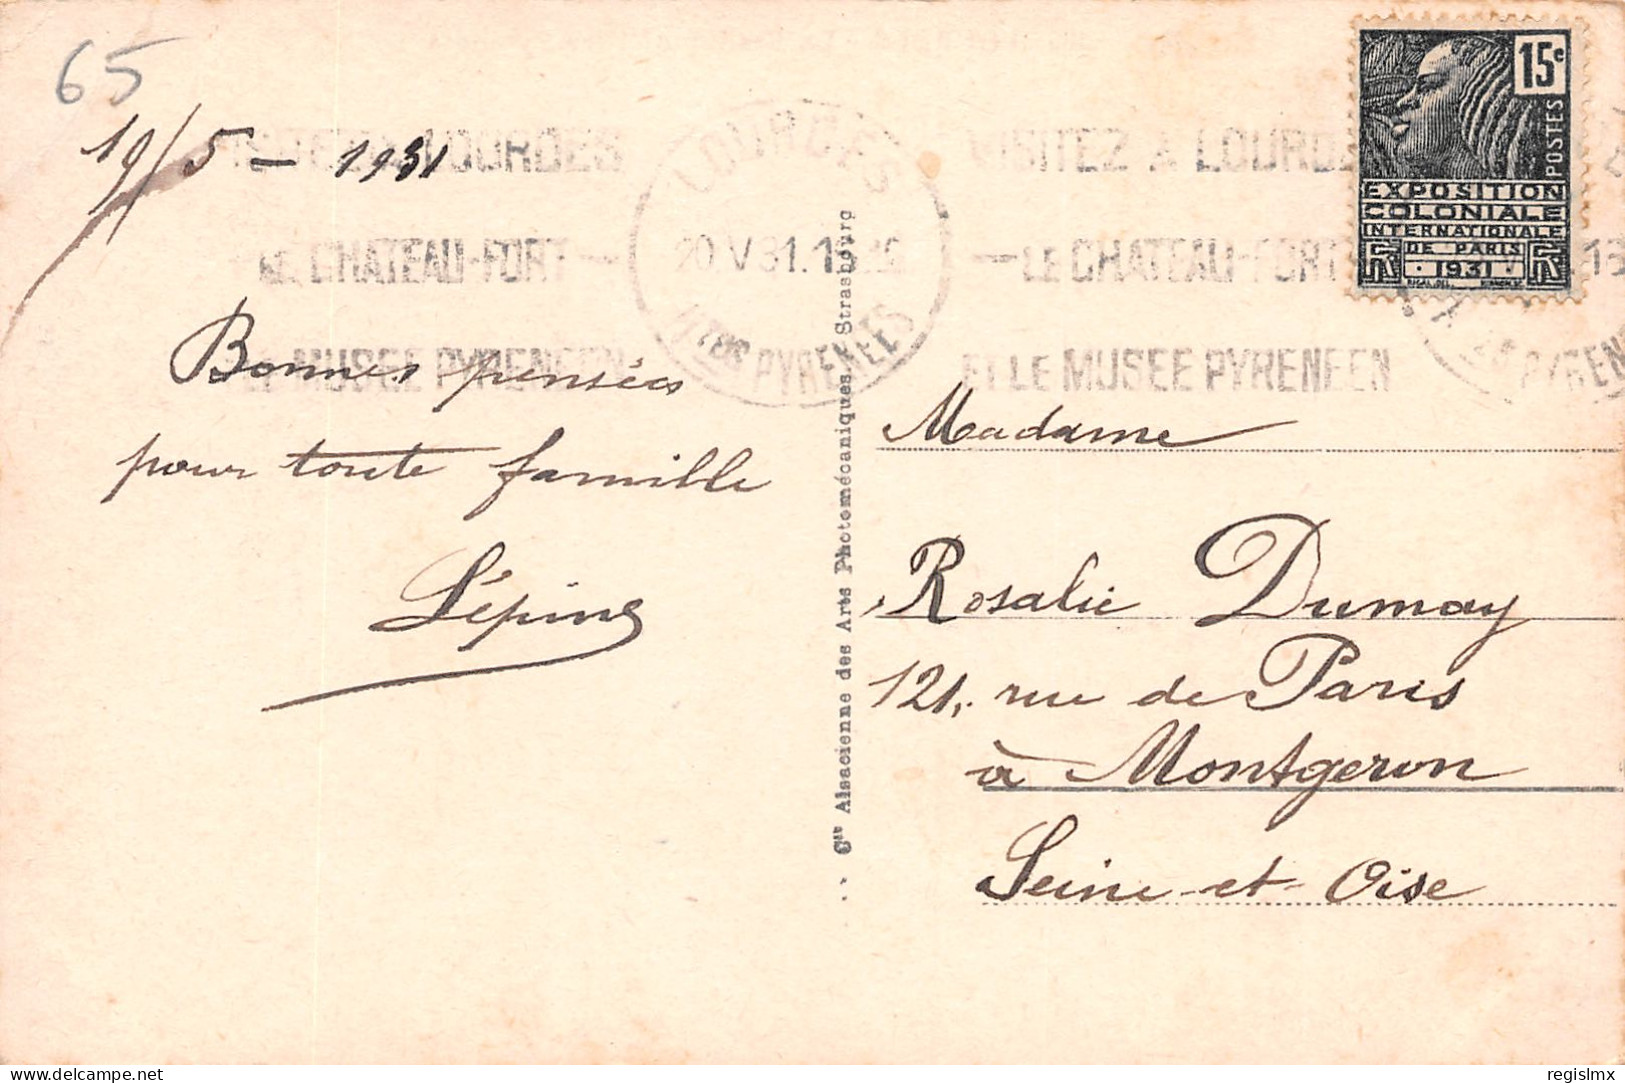 65
19/5 - 1931
VISITEZ A LOURDES
LE CHATEAU-FORT
ET LE MUSEE PYRENEEN
LOURDES
20 V 31
HTES PYRENEES
VISITEZ A LOURDES
LE CHATEAU-FORT
ET LE MUSEE PYRENEEN
PYRENEES
15c
POSTES
EXPOSITION
COLONIALE
INTERNATIONALE
DE PARIS
1931
Bonnes pensées
pour toute famille
Lépine
Cie Alsacienne des Arts Photomécaniques, Strasbourg
Madame
Rosalie Dumay
121, rue de Paris
à Montgeron
Seine-et-Oise
www.delcampe.net
regislmx